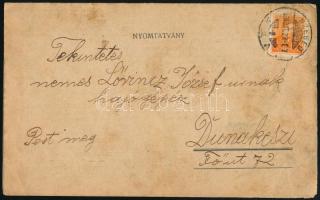 NYOMTATVÁNY
Tekintetes
nemes Lőrincz József urnak
hajógépész
Pest meg
Dunakeszi
Főút 72